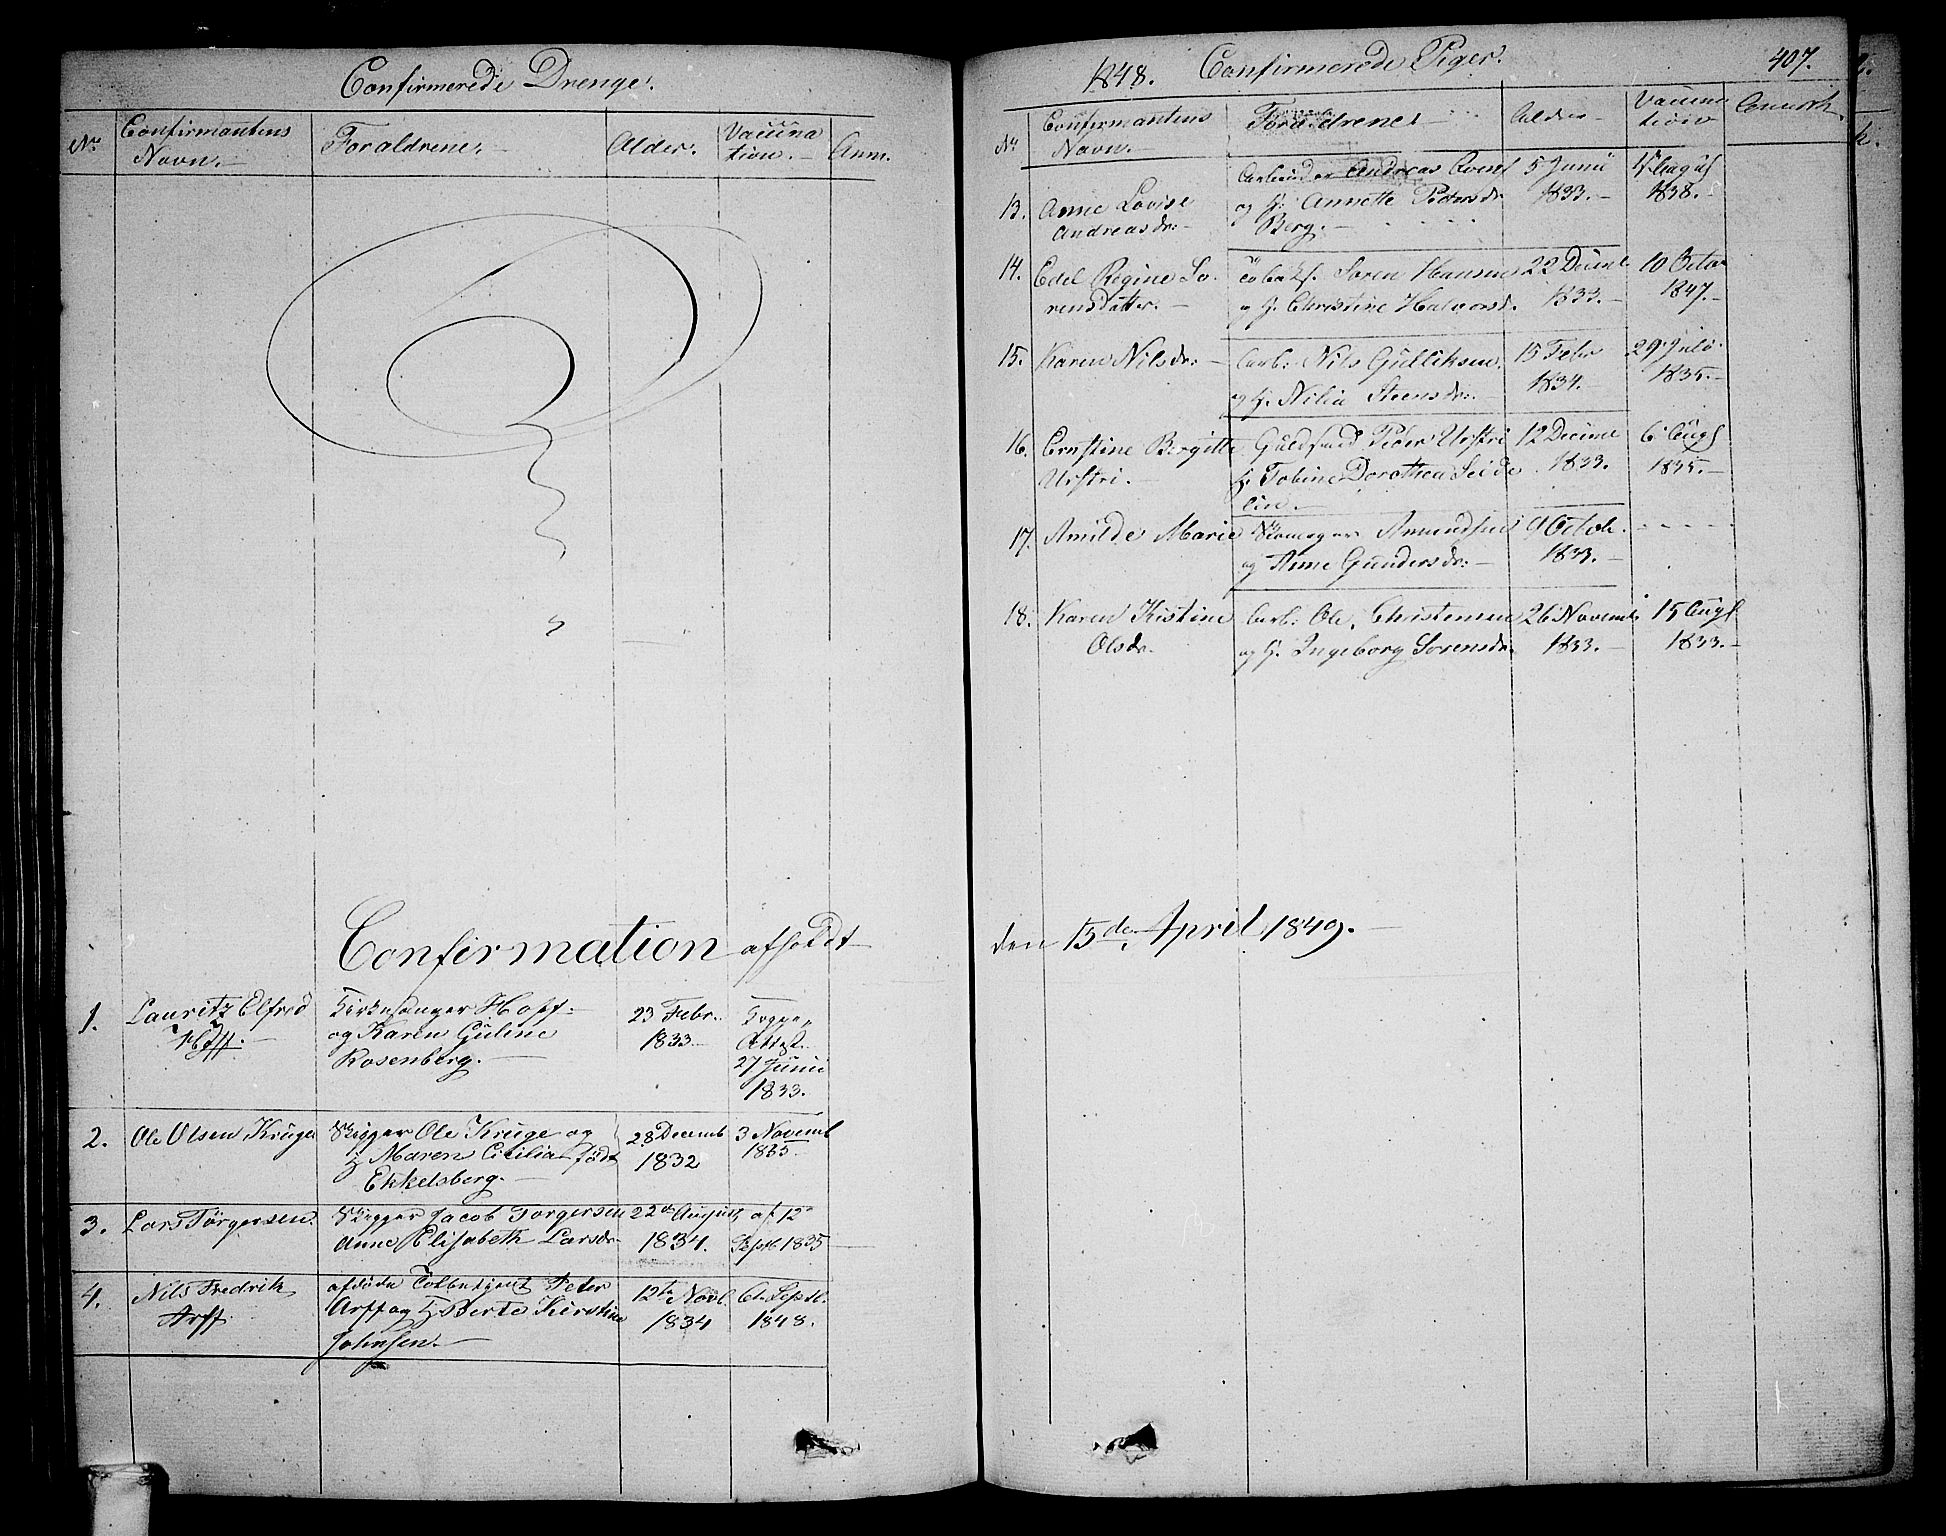 Confirmerede Drenge.
No
Confirmantens
Navn.
Foraldrene.
Alder.
Vaccina
tion.
Anm.
Confirmation afholdt
1.
Lauritz Elfred
Hoff.
Kirkesanger Hoff
og Karen Guline
Rosenberg.
23 Febr.
1833
Koppe
Attest
27 Junii
1833.
2.
Ole Olsen Kruge
Skipper Ole Kruge og
H Maren Cicilia født
Ekkelsberg.
28 Decemb
1832
3 Novemb
1835
3.
Lars Törgersen.
Skipper Jacob Torgersen
Anne Elisabeth Larsdr
22de August
1834.
af 12
Septb 1835
4.
Nils Fredrik
Arff
afdöde Tolbetjent Peter
Arff og H Berte Kirstine
Johnsen.
12te Novb.
1834
6te Septb.
1848.
1848. Confirmerede Piger. 407.
No
Confirmantens
Navn.
Forældrenes
Alder
Vaccina
tion
Anmerk
13.
Anne Lovise
Andreasdr:
Arbeider Andreas
og H. Annette Pedersdr
Berg.
5 Junii
1833.
1838.
14.
Edel Regine So-
rensdatter.
Tobaksf. Soren Hansen
og H. Christine Halvorsd.
22 Decmb
1833.
10 Octor
1847.
15.
Karen Nilsdr:
Arb: Nils Gulliksen
og H. Nilia Steensdr.
15 Febr
1834.
29 Juli
1835.
16.
Ernstine Bergitte
Urstri.
Guldsmed Peder Urstri
H Tobine Dorothea Seide
lin.
12 Decme
1833.
6 Augs
1835.
17.
Amilde Marie
Skomager Amundsen
og Anne Gundersdr:
9 Octob.
1833.
18.
Karen Kistine
Olsdr.
Arb: Ole Christensen
og H. Ingeborg Sorensdr.
26 Novemb
1833.
15 Augs
1833.
den 15de April 1849.